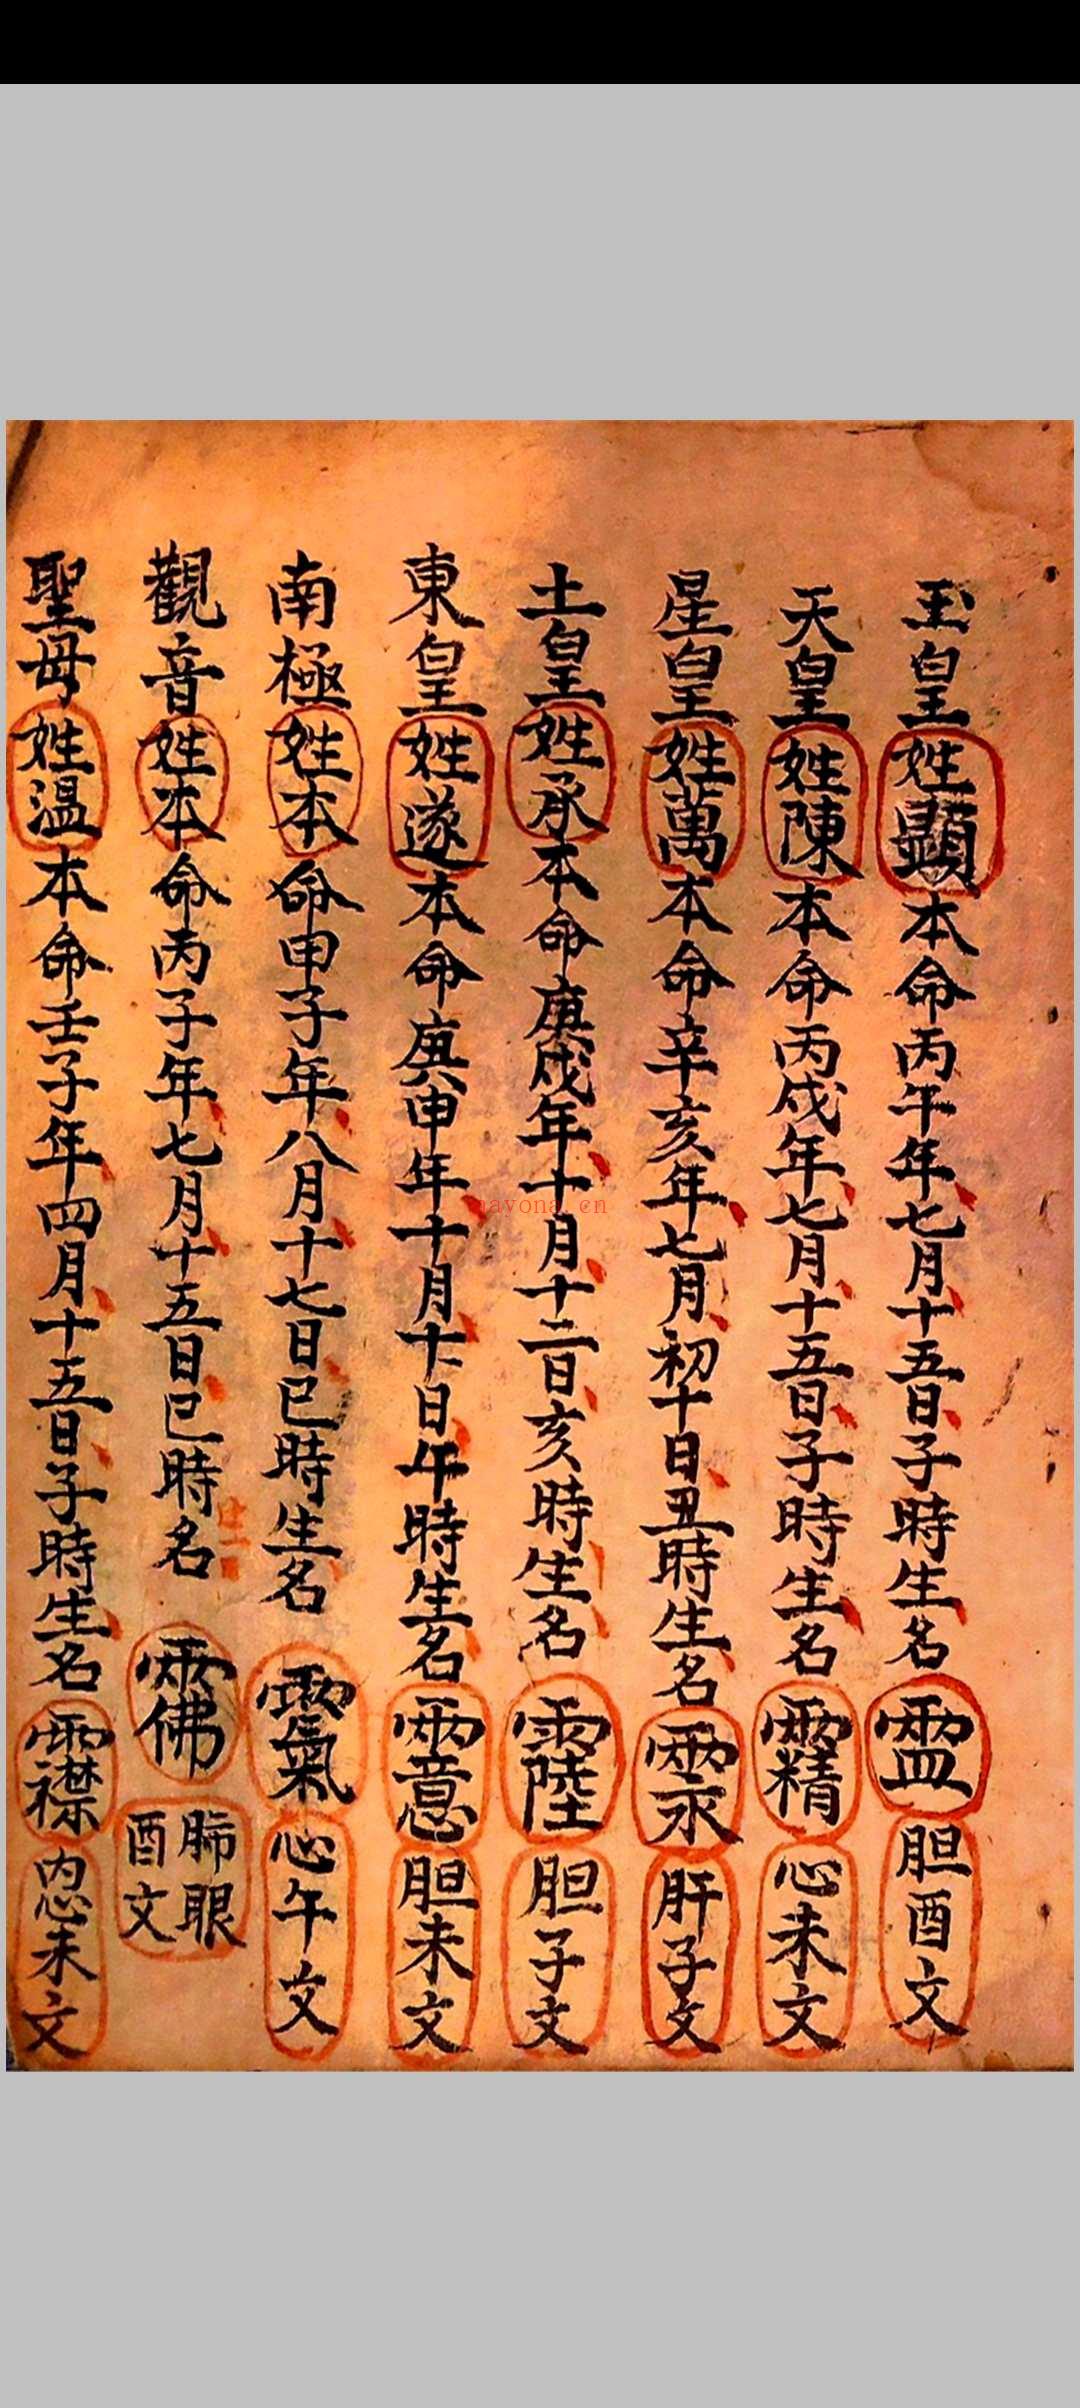 玉皇姓顯本命丙午年七月十五日子時生名𥁕胆酉文
天皇姓陳本命丙戌年七月十五日子時生名心未文
星皇姓萬本命辛亥年七月初十日丑時生名肝子文
土皇姓承本命庚戌年十月十二日亥時生名胆子文
東皇姓遂本命庚申年十月十日午時生名胆未文
南極姓本命甲子年八月十七日巳時生名心午文
觀音姓本命丙子年七月十五日巳時名眼酉文
聖母姓温本命壬子年四月十五日子時生名未文
nayona.cn